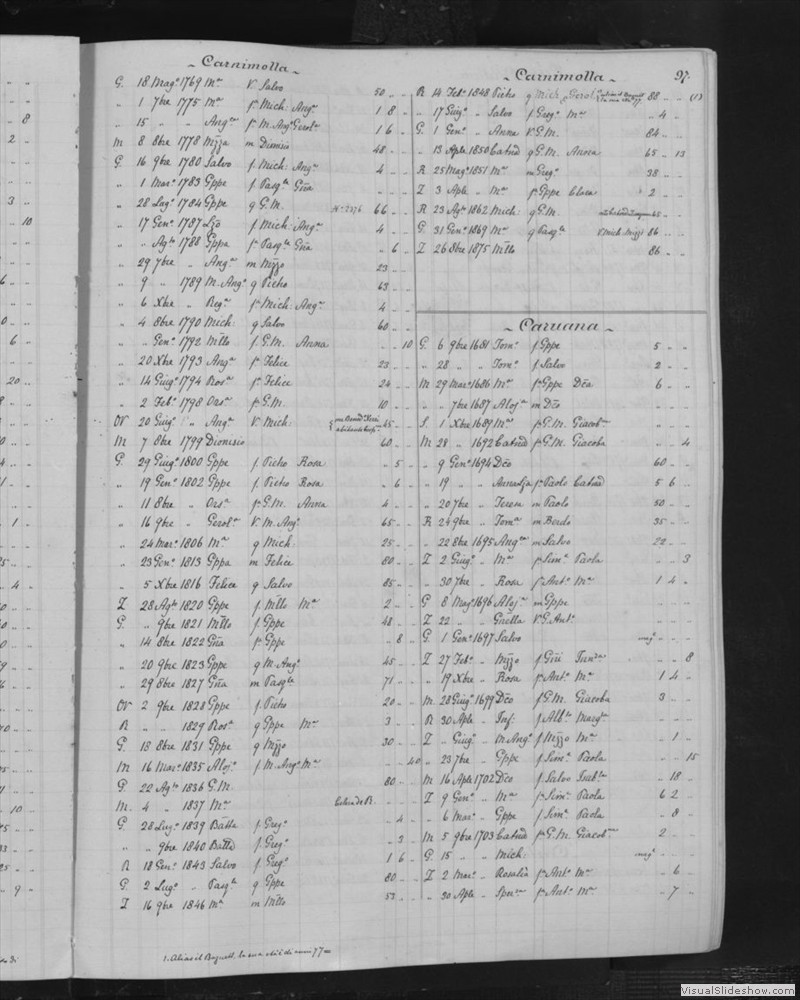 Carnimolla
G. 18 Mago 1769 Ma V Salvo 50 " "
" 1 7bre 1775 Ma fa Mich: Anga 1 8 "
" 15 " " Anga fa M. Anga Gerola 1 6 "
M 8 8bre 1778 Mzza m Dionisio 48 " "
G 16 9bre 1780 Salvo f Mich: Anga 4 " "
" 1 Mar: 1783 Gppe f Pasqle Gra
" 28 Lugo 1784 Gppe q G.M. 66 " "
" 17 Geno 1787 Lzo f Mich: Anga 4 " "
" " Agto 1788 Gppa fa Pasqle Gra " 6 "
" 29 7bre " Anga m Mzzo 23 " "
" 9 " 1789 M. Anga q Pietro 63 " "
" 6 Xbre " Rega fa Mich: Anga 4 " "
" 4 8bre 1790 Mich: q Salvo 60 " "
" " Geno 1792 Mllo f G.M. Anna " " 10
" 20 Xbre 1793 Anga fa Felice 23 " "
" 14 Giugo 1794 Rosa fa Felice 24 " "
" 2 Febo 1798 Orsa fa G.M. 10 " "
Or 20 Giugo " Anga V Mich: 45 " "
M 7 8bre 1799 Dionisio 60 " "
G. 29 Giugo 1800 Gppe f Pietro Rosa " 5 "
" 19 Geno 1802 Gppe f Pietro Rosa " 6 "
" 11 8bre " Orsa fa G.M. Anna 4 " "
" 16 9bre " Gerola V M. Ango 65 " "
" 24 Mar: 1806 Ma q Mich: 25 " "
" 23 Geno 1813 Gppa m Felice 80 " "
" 5 Xbre 1816 Felice q Salvo 85 " "
Z 28 Agto 1820 Gppe f Mllo Ma 2 " "
G. " 9bre 1821 Mllo f Gppe 48 " "
" 14 8bre 1822 Gra fa Gppe " 8 "
" 20 9bre 1823 Gppe q M. Ango 45 " "
" 29 8bre 1827 Gra m Pasqle 71 " "
Or 2 9bre 1828 Gppe f Pietro 20 " "
R " " 1829 Rosa q Gppe Ma 3 " "
G. 18 8bre 1831 Gppe q Mzzo 30 " "
M 16 Mar: 1835 Aloj: f M. Ango Ma " " 40
G 22 Agto 1836 G.M. 80 " "
M. 4 " 1837 Ma
G 28 Lugo 1839 Batta f Grego " 4 "
" " 9bre 1840 Batta f Grego " 3
R 18 Geno 1843 Salvo f Grego 1 6 "
G 2 Lugo " Pasqle q Gppe 80 " "
Z 16 9bre 1846 Ma m Mllo 53 " "
1. Alias il Bagnell. la sua età di anni 77
Carnimolla 97.
R 14 Febo 1848 Pietro q Mich: Gerola 88 " " (1)
" 17 Giugo " Salvo f Grego Ma " 4 "
G. 1 Geno " Anna V G.M. 84 " "
" 13 Aple 1850 Catrid q G.M. Anna 65 " 13
R 25 Mago 1851 Ma m Grego 38 " "
Z 3 Aple " Ma fa Gppe Clara 2 "
R 23 Agto 1862 Mich: q G.M. 45 " "
G 31 Geno 1869 Ma q Pasqle V Mich: Mzzo 86 " "
Z 26 8bre 1875 Mllo 86 " "
Caruana
G. 6 9bre 1681 Toma f Gppe 5 " "
" 28 " " Toma f Salvo 2 " "
M 29 Mar: 1686 Ma fa Gppe Dca 6 " "
" " 7bre 1687 Aloja m Dco
S. 1 Xbre 1689 Ma fa G.M. Giacoba
M 28 " 1692 Catrid fa G.M. Giacoba " " 4
" 9 Geno 1694 Dco 60 " "
" 19 " " fa Paolo Catrid 5 6 "
" 20 7bre " Teresa m Paolo 50 " "
R 24 9bre " Toma m Berdo 35 " "
" 22 8bre 1695 Anga m Salvo 22 " "
Z 2 Giugo " Ma fa Sima Paola " " 3
" 30 7bre " Rosa fa Anto Ma 1 4 "
G 8 Mago 1696 Aloja m Gppe
Z 22 " " Grella V G. Anto
G. 1 Geno 1697 Salvo
Z 27 Febo " Mzzo f Gio: " " 8
" 19 Xbre " Rosa fa Anto Ma 1 4 "
M 28 Giugo 1699 Dco f G.M. Giacoba 3 " "
R 30 Aple " Inf: f Albo Marga
Z " Giugo " M Ango f Mzzo Ma " 1 "
" 23 7bre " Gppe f Sima Paola " " 15
M 16 Aple 1702 Dco f Salvo " 18 "
Z 9 Geno " Ma fa Sima Paola 6 2 "
" 6 Mar: " Gppe f Sima Paola " 8 "
M 5 9bre 1703 Catrid fa G.M. Giacoba 2 " "
G. 15 " " Mich:
Z 2 Mar: " Rosalia fa Anto Ma " 6 "
" 30 Aple " fa Anto Ma " 7 "
VisualSlideshow.com